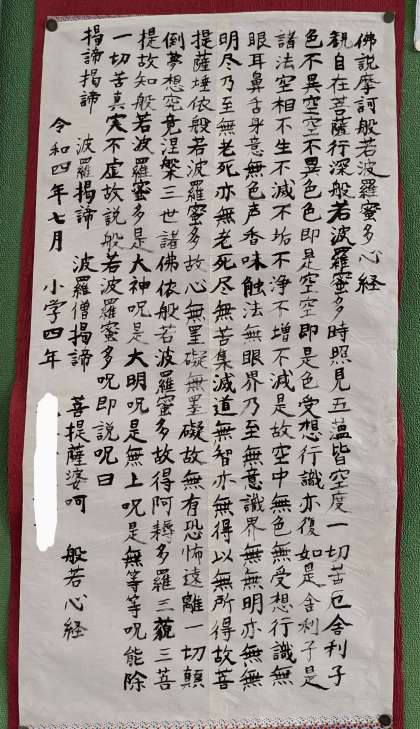 佛説摩訶般若波羅蜜多心経
観自在菩薩行深般若波羅蜜多時照見五蘊皆空度一切苦厄舎利子
色不異空空不異色色即是空空即是色受想行識亦復如是舎利子是
諸法空相不生不滅不垢不浄不増不減是故空中無色無受想行識無
眼耳鼻舌身意無色声香味触法無眼界乃至無意識界無無明亦無無
明尽乃至無老死亦無老死尽無苦集滅道無智亦無得以無所得故菩
提薩埵依般若波羅蜜多故心無罣礙無罣礙故無有恐怖遠離一切顛
倒夢想究竟涅槃三世諸佛依般若波羅蜜多故得阿耨多羅三藐三菩
提故知般若波羅蜜多是大神呪是大明呪是無上呪是無等等呪能除
一切苦真実不虚故説般若波羅蜜多呪即説呪曰
揭諦揭諦 波羅揭諦 波羅僧揭諦 菩提薩婆呵 般若心経
令和四年七月 小学四年